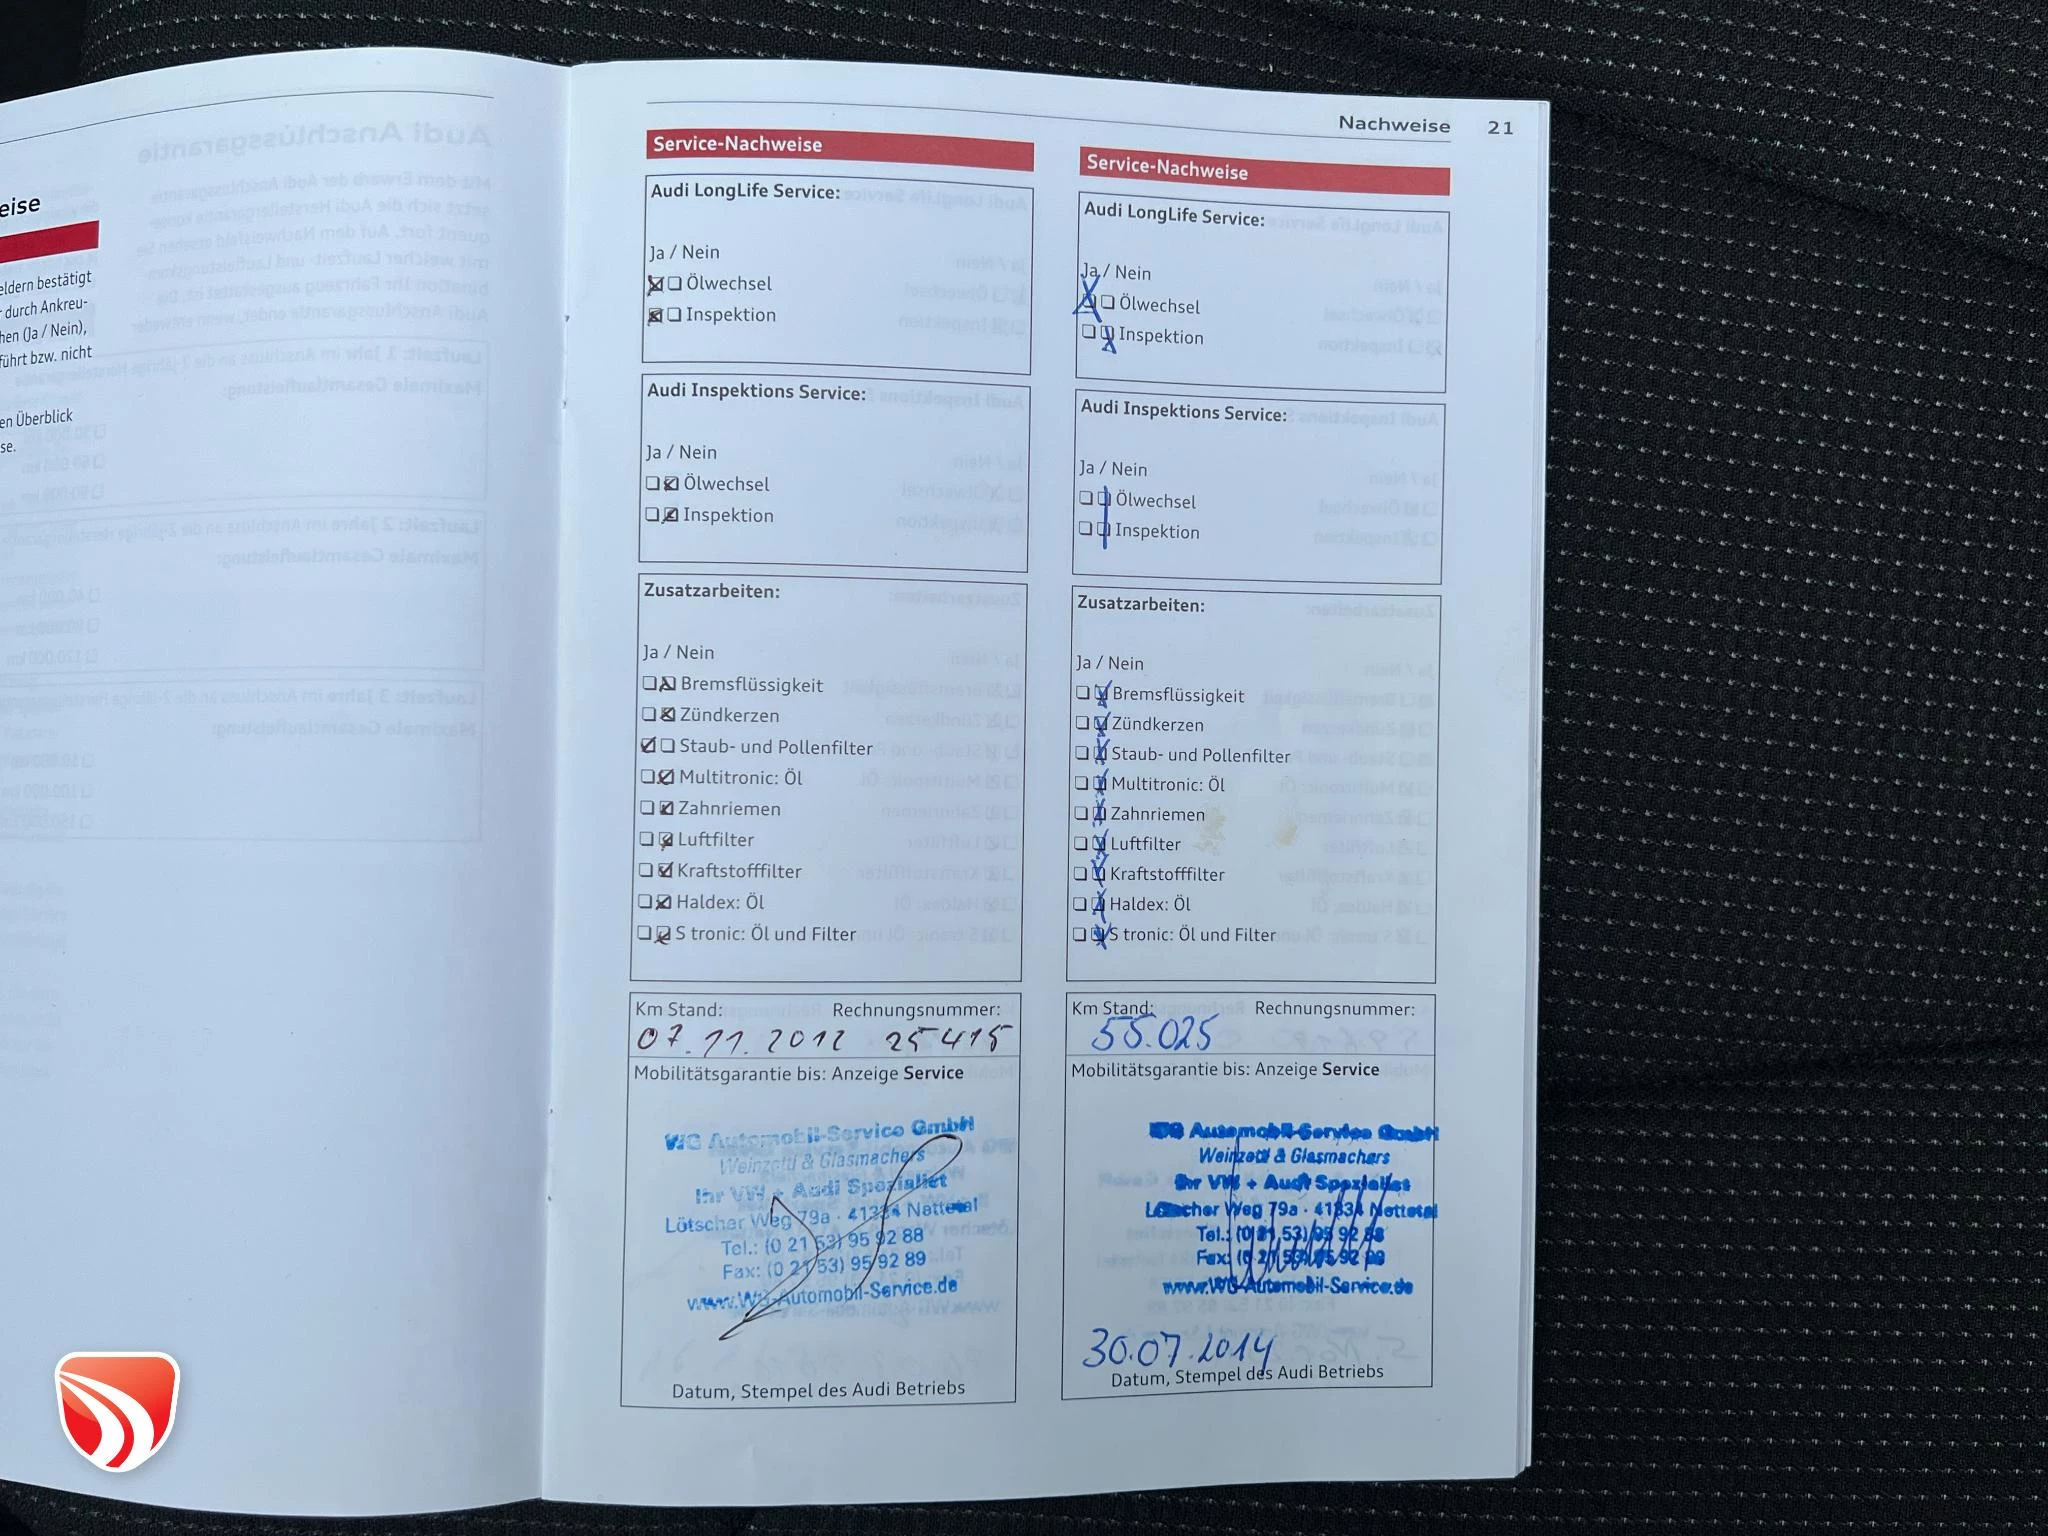 eise
eldern bestätigt
r durch Ankreu-
hen (Ja / Nein),
führt bzw. nicht
en Überblick
se.
Nachweise 21
Service-Nachweise
Audi LongLife Service:
Ja / Nein
Ölwechsel
Inspektion
Audi Inspektions Service:
Ja / Nein
Ölwechsel
Inspektion
Zusatzarbeiten:
Ja / Nein
Bremsflüssigkeit
Zündkerzen
Staub- und Pollenfilter
Multitronic: Öl
Zahnriemen
Luftfilter
Kraftstofffilter
Haldex: Öl
S tronic: Öl und Filter
Km Stand: Rechnungsnummer:
07.11.2012 25415
Mobilitätsgarantie bis: Anzeige Service
WG Automobil-Service GmbH
Weinzettl & Glasmachers
Ihr VW + Audi Spezialist
Lötscher Weg 79a · 41334 Nettetal
Tel.: (0 21 53) 95 92 88
Fax: (0 21 53) 95 92 89
www.WG-Automobil-Service.de
Datum, Stempel des Audi Betriebs
Service-Nachweise
Audi LongLife Service:
Ja / Nein
Ölwechsel
Inspektion
Audi Inspektions Service:
Ja / Nein
Ölwechsel
Inspektion
Zusatzarbeiten:
Ja / Nein
Bremsflüssigkeit
Zündkerzen
Staub- und Pollenfilter
Multitronic: Öl
Zahnriemen
Luftfilter
Kraftstofffilter
Haldex: Öl
S tronic: Öl und Filter
Km Stand: Rechnungsnummer:
55.025
Mobilitätsgarantie bis: Anzeige Service
WG Automobil-Service GmbH
Weinzettl & Glasmachers
Ihr VW + Audi Spezialist
Lötscher Weg 79a · 41334 Nettetal
Tel.: (0 21 53) 95 92 88
Fax: (0 21 53) 95 92 89
www.WG-Automobil-Service.de
30.07.2014
Datum, Stempel des Audi Betriebs